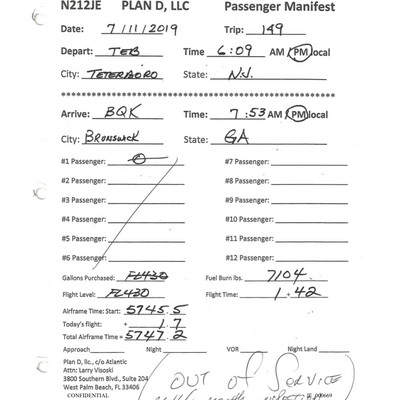 N212JE PLAN D, LLC Passenger Manifest
Date: 7/11/2019 Trip: 149
Depart: TEB Time 6:09 AM/PM local
City: TETERBORO State: N.J.
Arrive: BQK Time: 7:53 AM/PM local
City: BRUNSWICK State: GA
#1 Passenger: 0 #7 Passenger:
#2 Passenger: #8 Passenger:
#3 Passenger: #9 Passenger:
#4 Passenger: #10 Passenger:
#5 Passenger: #11 Passenger:
#6 Passenger: #12 Passenger:
Gallons Purchased: FL430 Fuel Burn lbs. 7104
Flight Level: FL430 Flight Time: 1.42
Airframe Time: Start: 5745.5
Today's flight: + 1.7
Total Airframe Time = 5747.2
Approach Night VOR Night Land
Plan D, llc, c/o Atlantic
Attn: Larry Visoski
3800 Southern Blvd., Suite 204
West Palm Beach, FL 33406
(OUT OF SERVICE)
CONFIDENTIAL